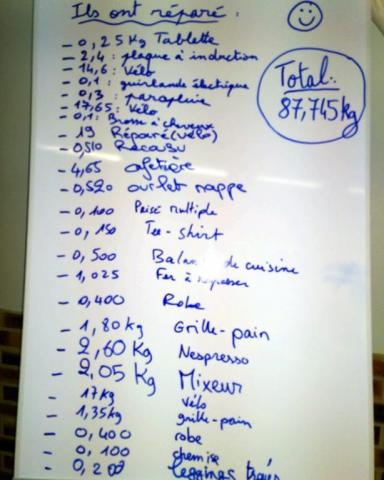 Ils ont réparé :
- 0,25Kg Tablette
- 2,4 : plaque à induction
- 14,6 : Vélo
- 0,1 : guirlande électrique
- 0,3 : parapluie
- 17,65 : Vélo
- 0,1 : Brosse à cheveux
- 19 Réparé (vélo)
- 0,510
- 4,65 cafetière
- 0,520 ourlet nappe
- 0,100 Prise multiple
- 0,150 Tee-shirt
- 0,500 de cuisine
- 1,025 Fer à repasser
- 0,400 Robe
- 1,80 kg Grille-pain
- 2,60 Kg Nespresso
- 2,05 Kg Mixeur
- 17kg vélo
- 1,35kg grille-pain
- 0,400 robe
- 0,100 chemise
- 0,200 leggings
Total:
87,745kg